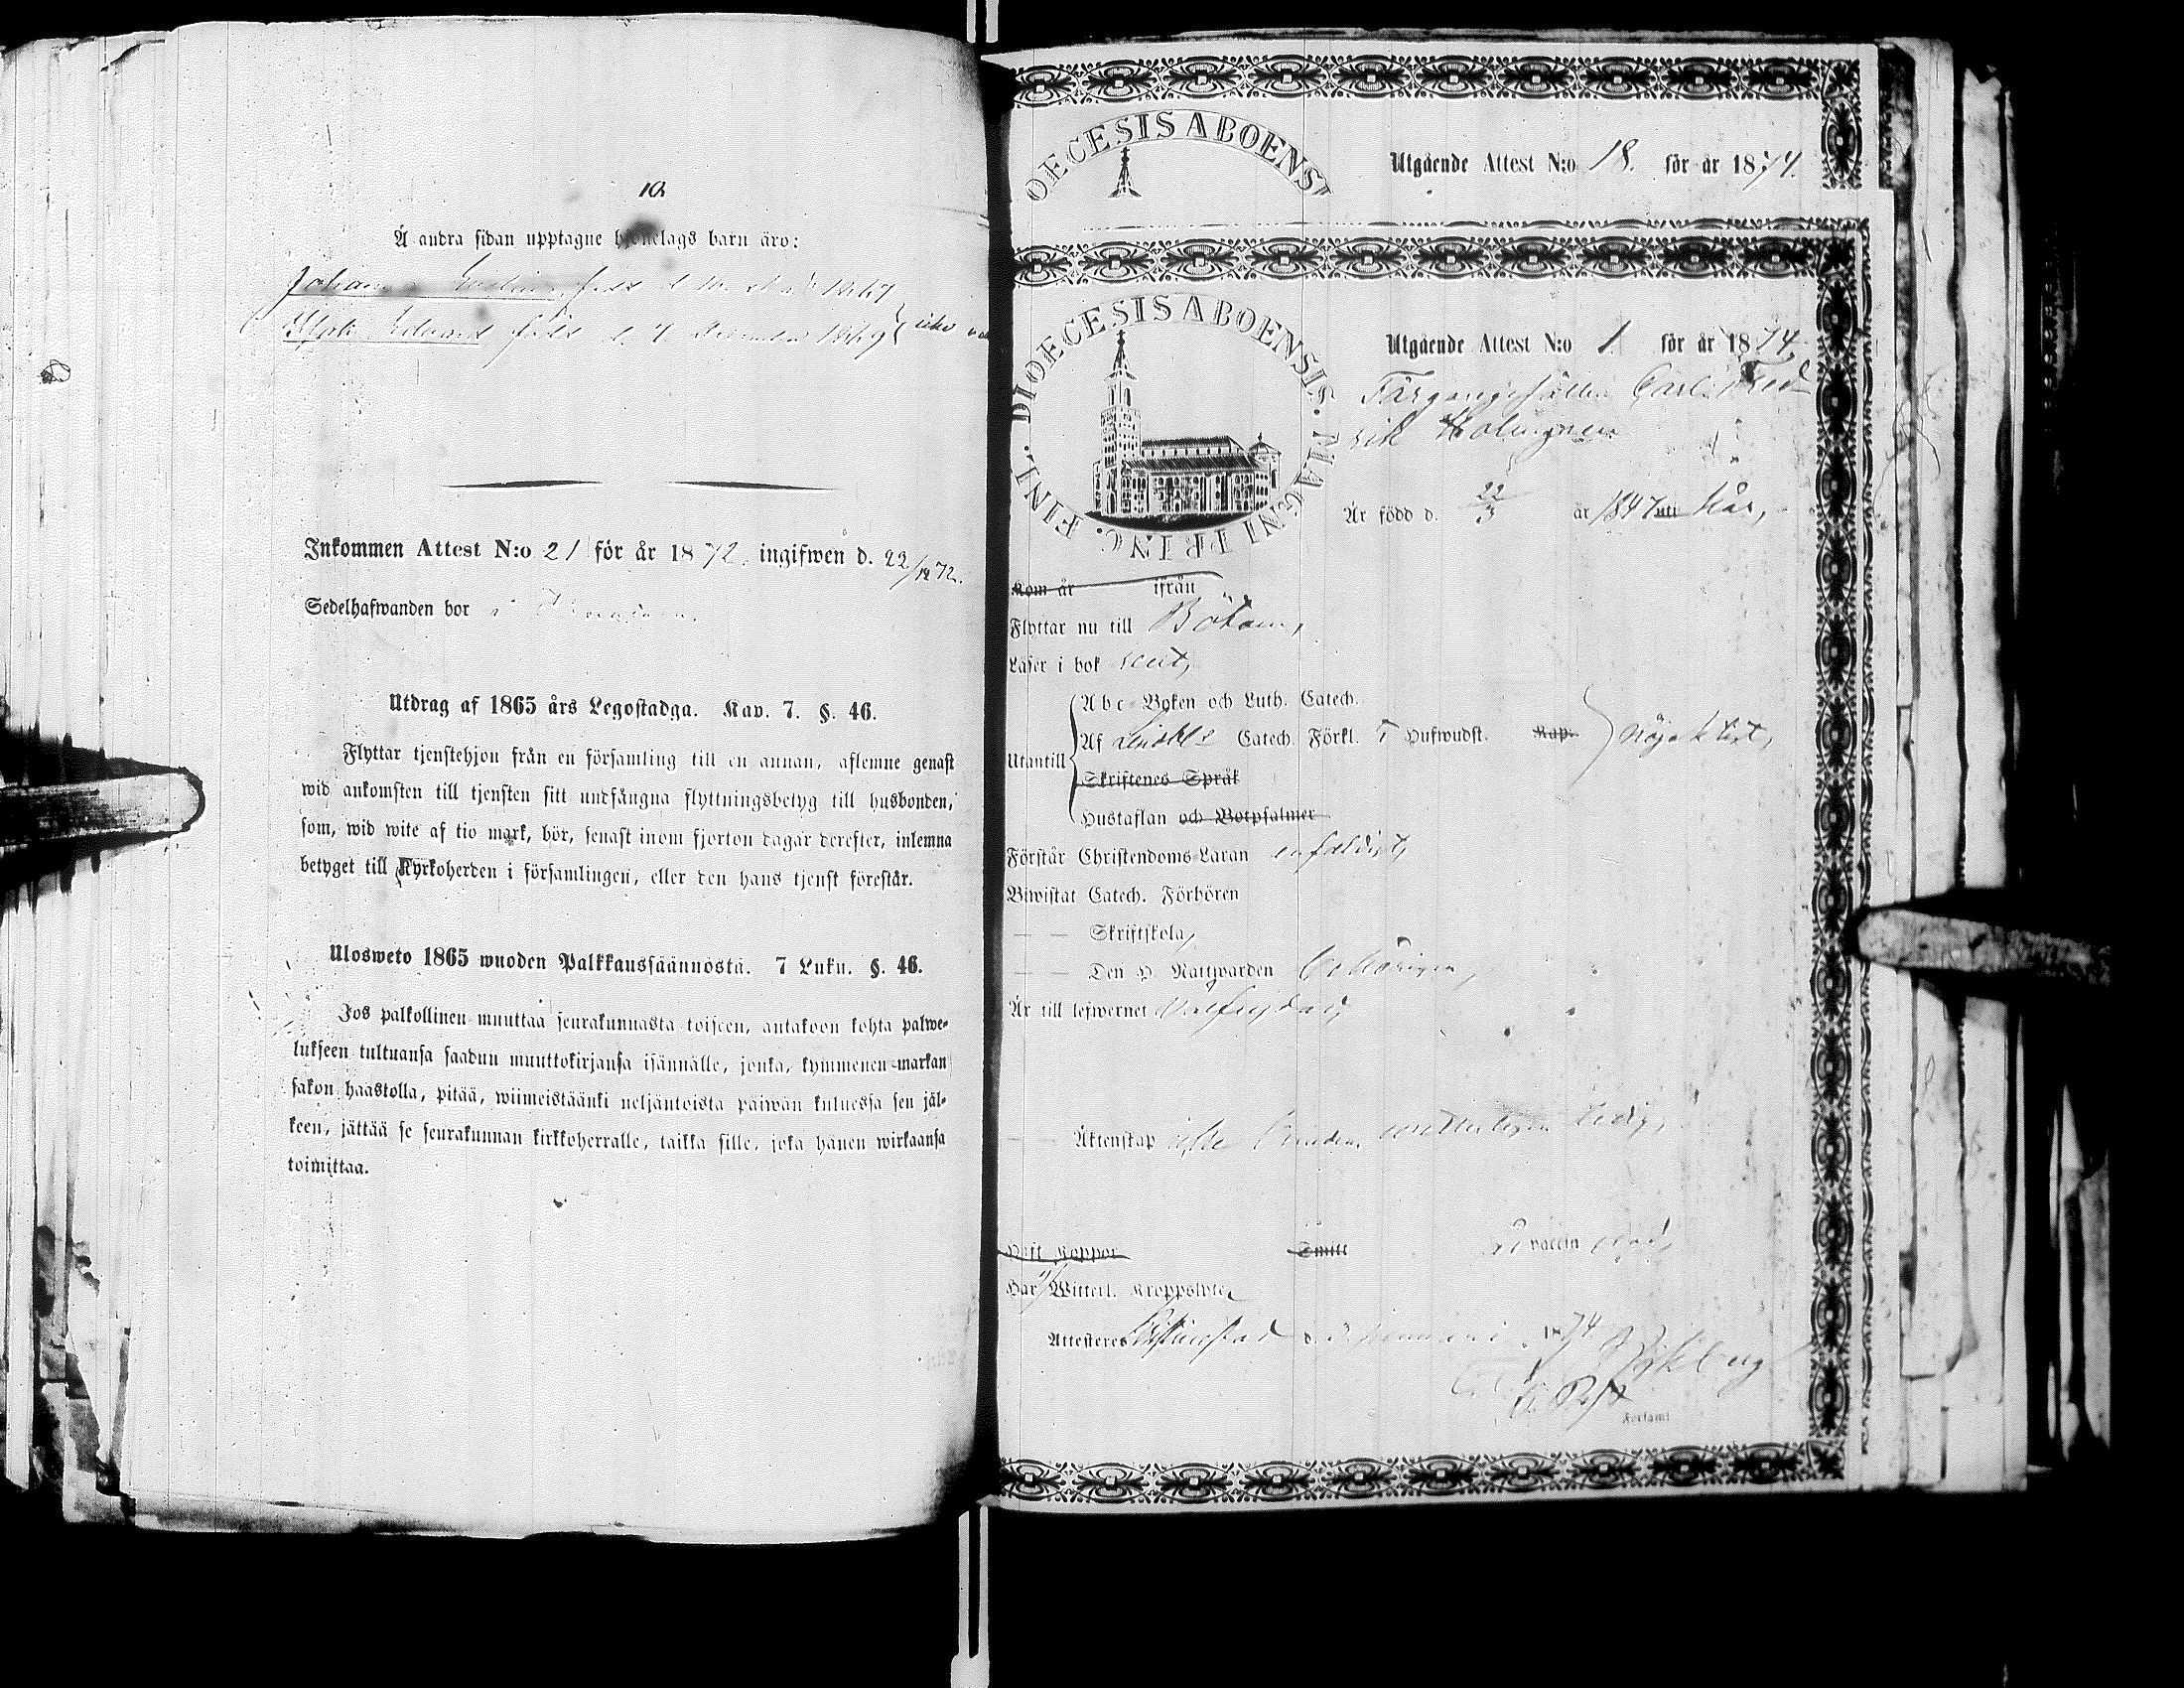 10.
Å andra sidan upptagne hjonelags barn äro:
Johan född d. 10 1867
född d. 7 December 1869
Inkommen Attest N:o 21 för år 1872. ingifwen d. 22/12 72.
Sedelhafwanden bor i
Utdrag af 1865 års Legostadga. Kap. 7. §. 46.
Flyttar tjenstehjon från en församling till en annan, aflemne genast
wid ankomsten till tjensten sitt undfångna flyttningsbetyg till husbonden,
som, wid wite af tio mark, bör, senast inom fjorton dagar derefter, inlemna
betyget till Kyrkoherden i församlingen, eller den hans tjenst förestår.
Ulosweto 1865 wuoden Palkkaussäännöstä. 7 Luku. §. 46.
Jos palkollinen muuttaa seurakunnasta toiseen, antakoon kohta palwe-
lukseen tultuansa saadun muuttokirjansa isännälle, jonka, kymmenen markan
sakon haastolla, pitää, wiimeistäänki neljäntoista päiwän kuluessa sen jäl-
keen, jättää se seurakunnan kirkkoherralle, taikka sille, joka hänen wirkaansa
toimittaa.
OECESIS ABOENSI
Utgående Attest N:o 18. för år 1874.
DIOECESIS ABOENSIS. MAGNI PRINC. FINL.
Utgående Attest N:o 1. för år 1874.
Färgaregesällen Carl Fred
rik Holmgren
Är född d. 22/3 år 1847 uti här,
Kom år ifrån
Flyttar nu till Bötom,
Läser i bok rent,
Utantill
Abc-Boken och Luth. Catech.
Af Catech. Förkl. Hufwudst. Kap. nöjaktigt,
Skriftenes Språk
Hustaflan och Botpsalmer
Förstår Christendoms Läran enfaldigt,
Biwistat Catech. Förhören
— — Skriftskola,
— — Den H. Nattwarden behörigen,
Är till lefwernet wälfrejdad,
— — Äktenskap witterligen ledig,
Haft Koppor Smitt Är vaccin erad,
Har Witterl. Kroppslyte
Attesteras Christinestad d. 3 Januari 1874
Församl